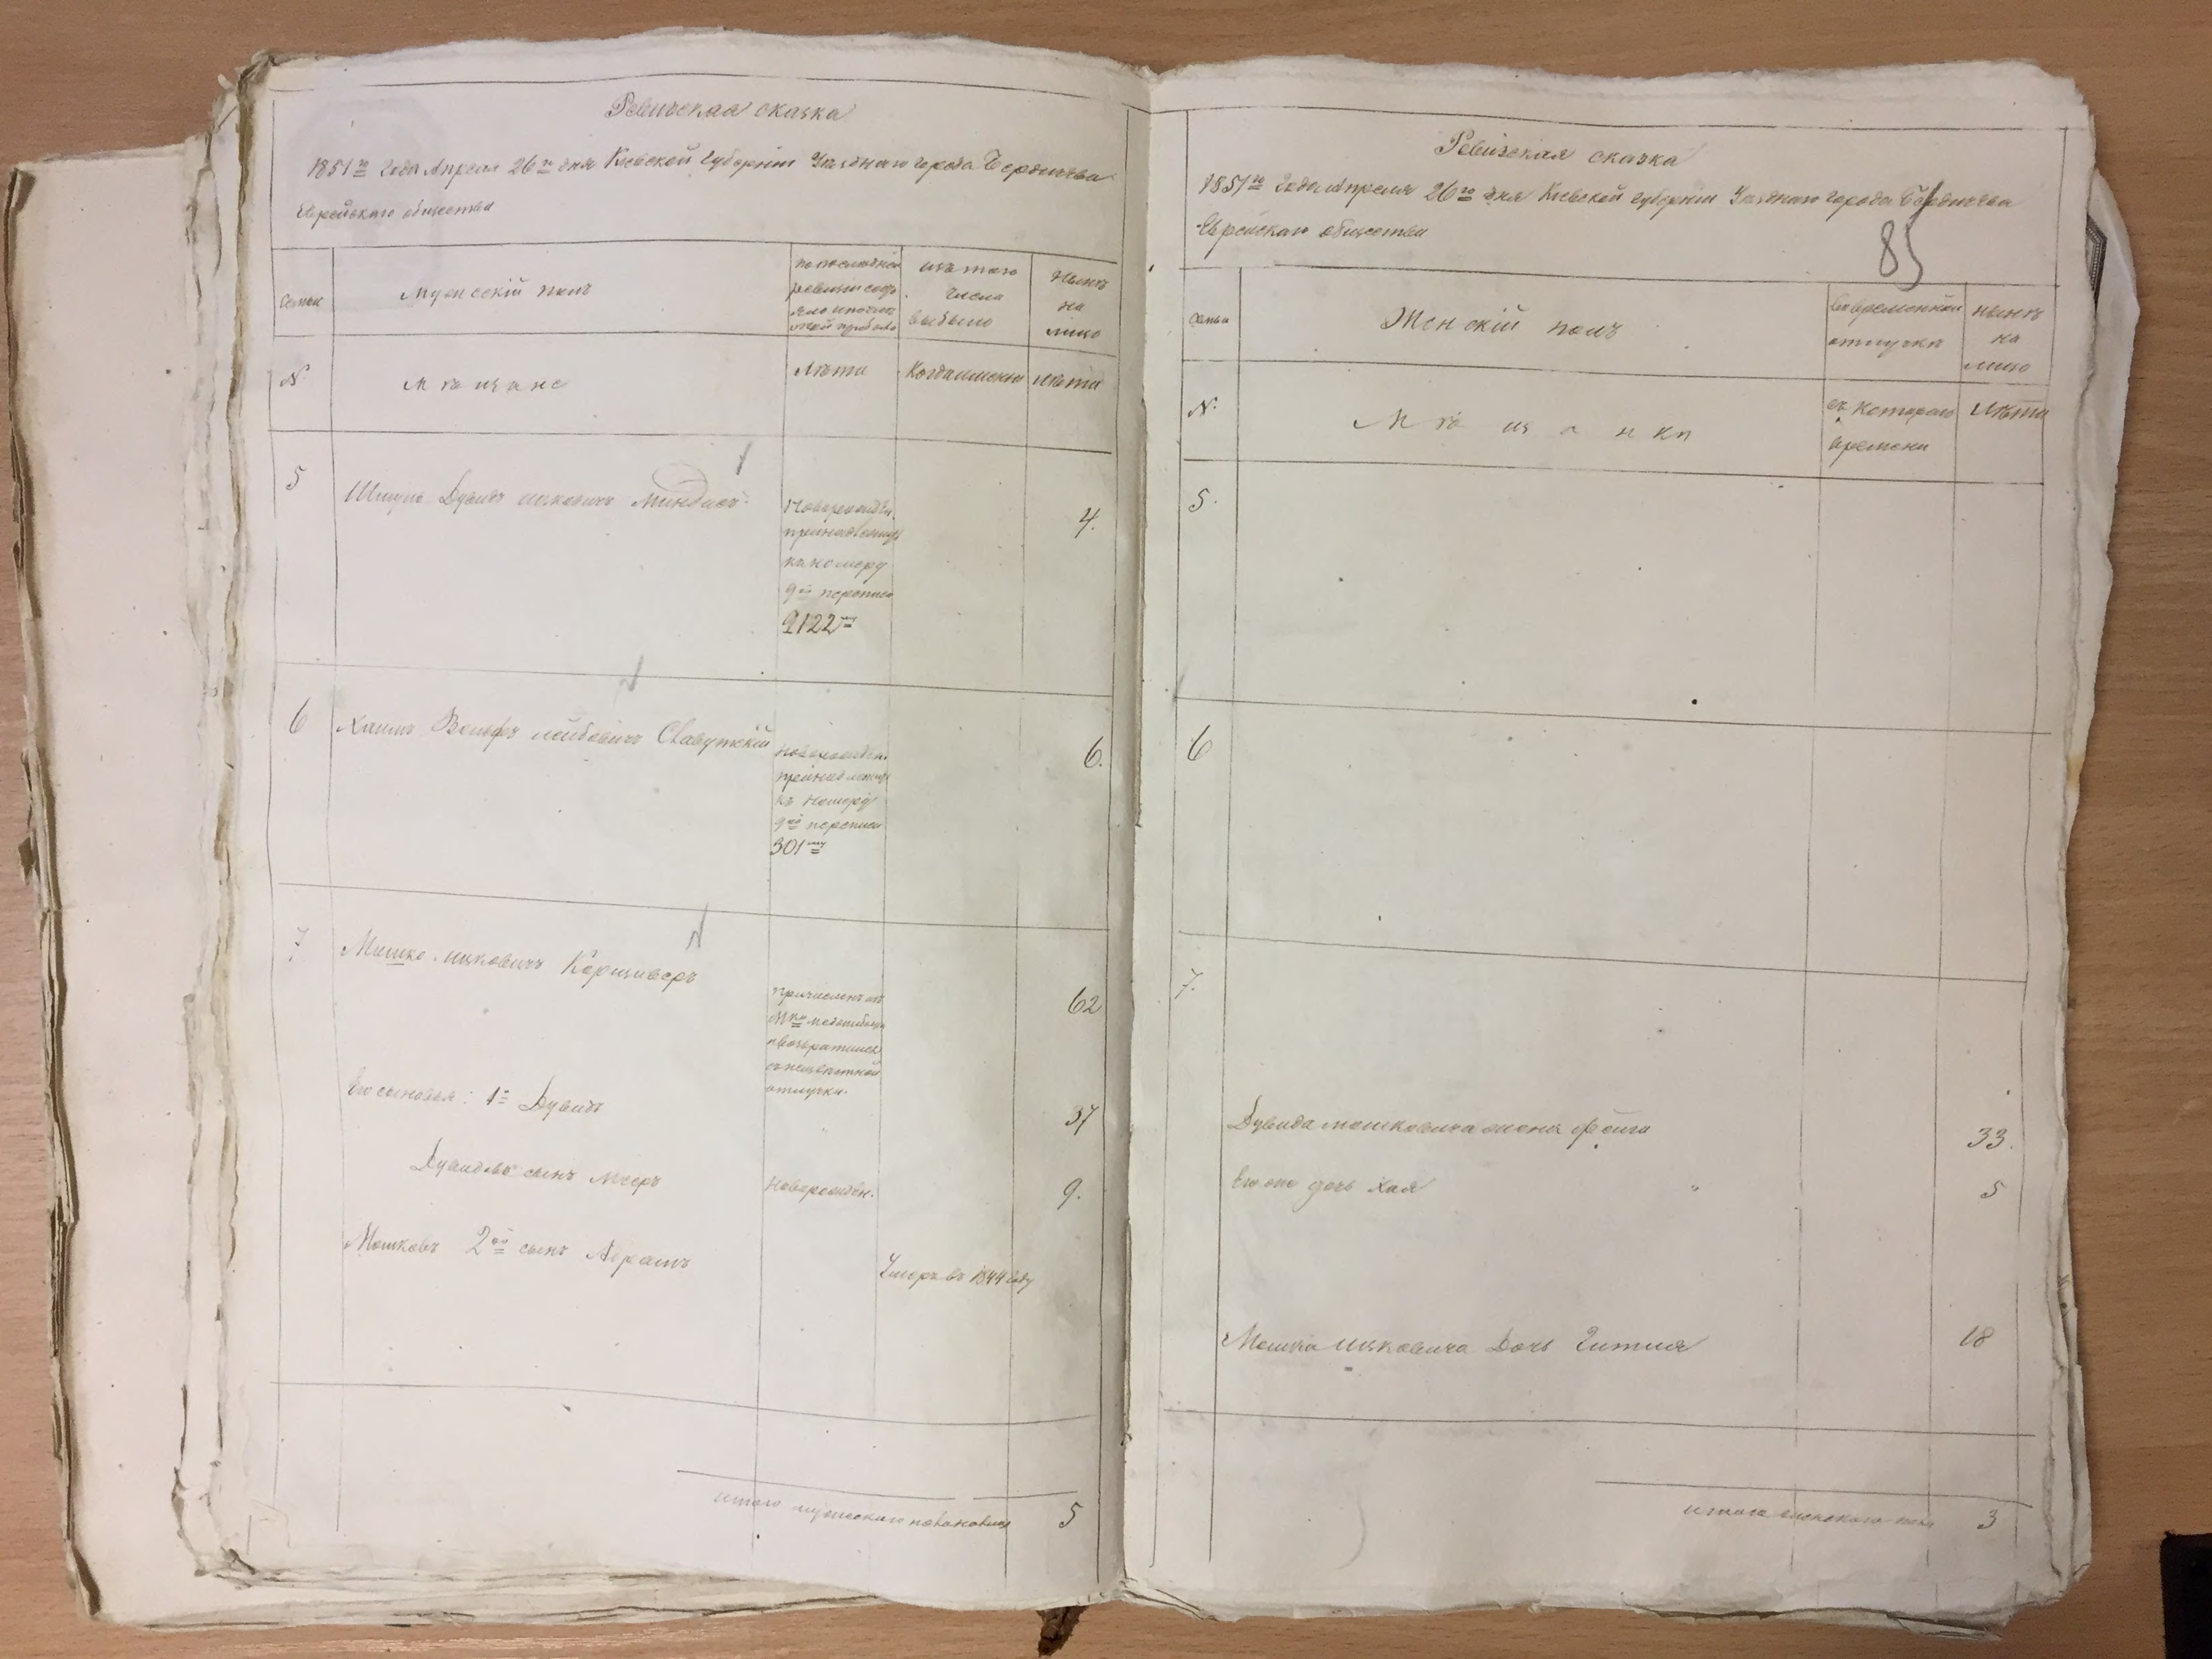 Ревизская сказка
1851го Года Апреля 26го дня Киевской Губерніи Уезднаго города Бердичева
Еврейскаго общества
Семьи
Мужескій полъ
по последней
ревизии состо
яло и после
оной прибыло
изъ того
числа
выбыло
Нынѣ
на
лицо
N
Мѣщане
Лѣта
Когда именно
Лѣта
5
Шмуль Дувидъ Ицковичъ Миндисъ
Новорожден.
принадлежи
къ номеру
9ой переписи
2122му
4.
6
Хаимъ Вольфъ Лейбовичъ Славутскій
новорожден.
принадлежи
къ номеру
9ой переписи
301му
6.
7
Мошко Ицковичъ Корциверъ
причисленъ изъ
Мка
возвратился
отлучки.
62
Его сыновья: 1й Дувидъ
37
Дувидовъ сынъ Мееръ
новорожден.
9.
Мошковъ 2ой сынъ Абрамъ
Умеръ въ 1844 году
итого мужескаго пола на лицо
5
Ревизская сказка
1851го Года Апреля 26го дня Киевской Губерніи Уезднаго города Бердичева
Еврейскаго общества
85
Семьи
Женскій полъ
Во временной
отлучкѣ
нынѣ
на
лицо
N.
Мѣщанки
съ котораго
времени
Лѣта
5.
6
7.
Дувида Мошковича жена Фейга
33.
Его же дочь Хая
5
Мошка Ицковича Дочь Гитля
18
итого женскаго пола
3